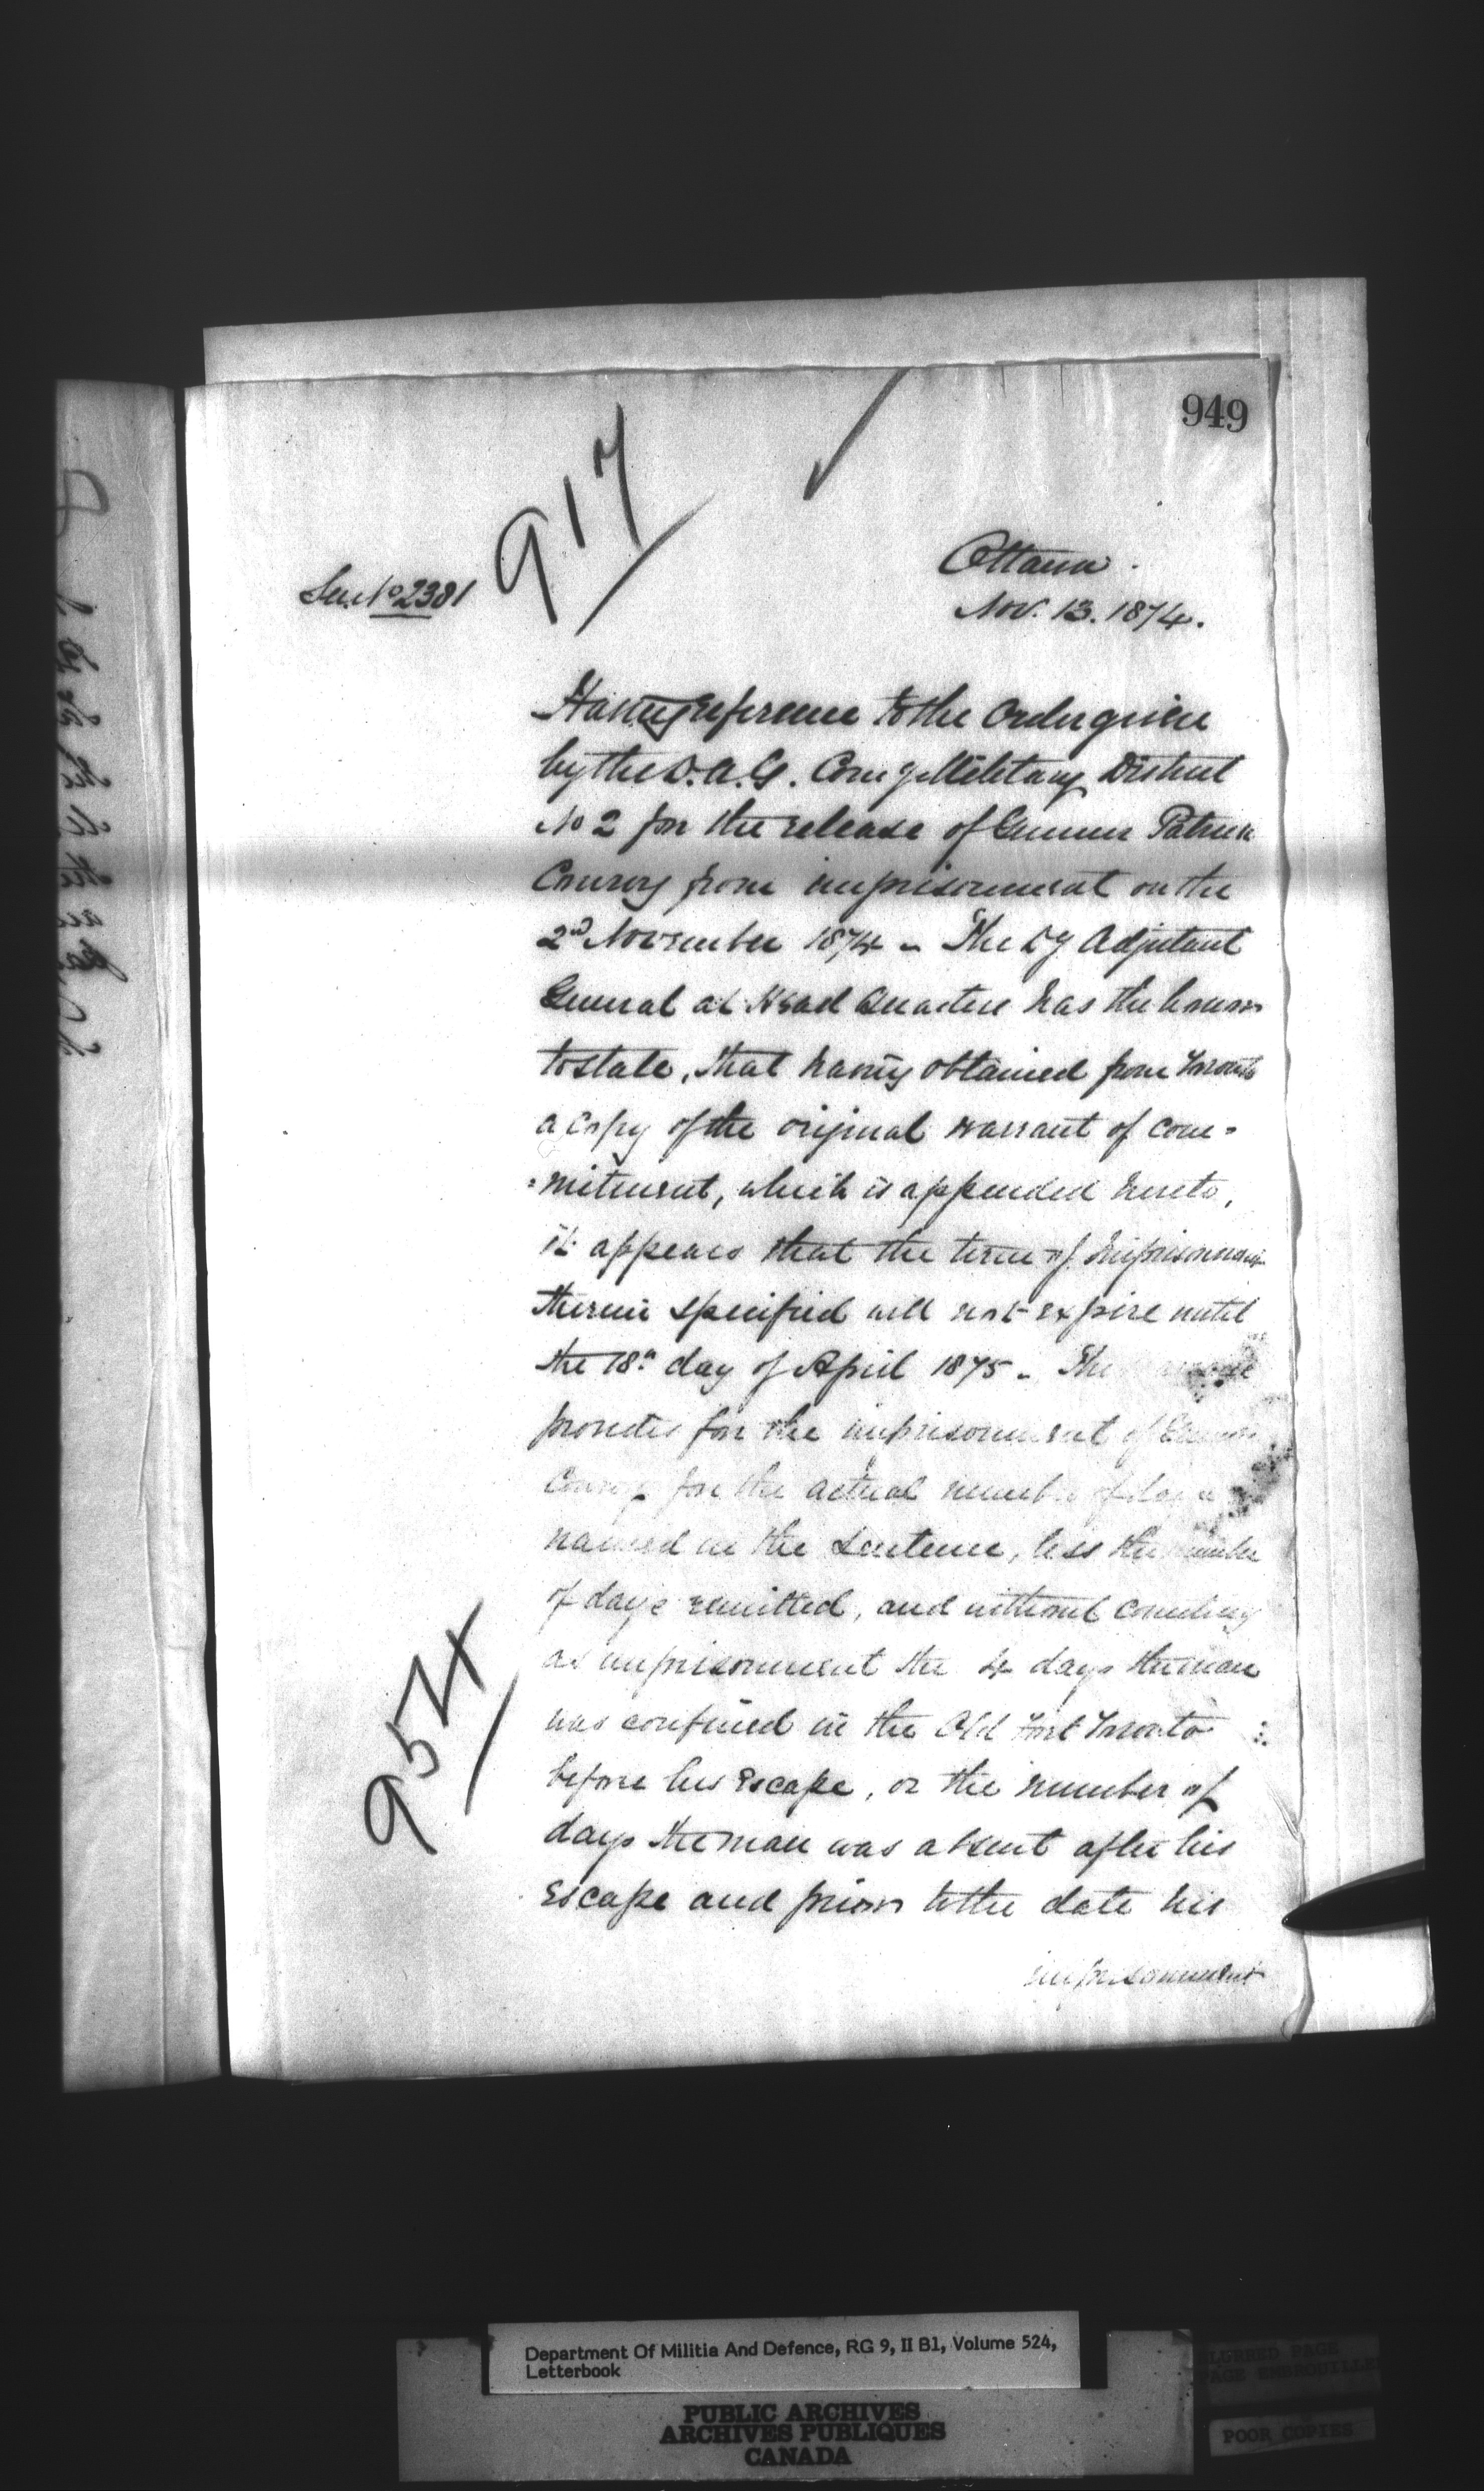 949
917
Ottawa.
Nov. 13. 1874.
No 2381
Having reference to the Order given
by the D.A.G. Comg Military District
No 2 for the release of Gunner Patrick
Conroy from imprisonment on the
2nd November 1874 - The Dy Adjutant
General at Head Quarters has the honor
to state, that having obtained from Toronto
a Copy of the original warrant of com=
=mitment, which is appended hereto,
it appears that the term of Imprisonment
therein specified will not expire until
the 18th day of April 1875 - The
provides for the imprisonment of Gunner
Conroy for the actual number of days
named in the Sentence, less the number
of days remitted, and without counting
as imprisonment the 4 days the man
was confined in the Old Fort Toronto
before his Escape, or the number of
days the man was absent after his
Escape and prior to the date his
imprisonment
954
Department Of Militia And Defence, RG 9, II B1, Volume 524,
Letterbook
PUBLIC ARCHIVES
ARCHIVES PUBLIQUES
CANADA
BLURRED PAGE
POOR COPIES